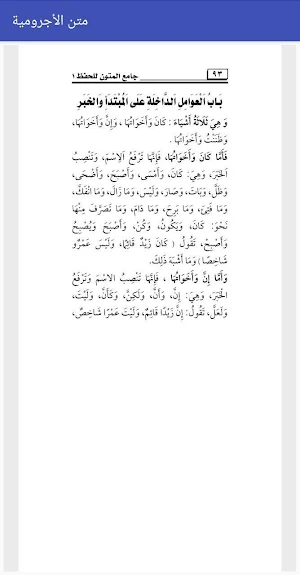 متن الأجرومية
٩٣ جامع المتون للحفظ ١
بَابُ الْعَوَامِلِ الدَّاخِلَةِ عَلَى الْمُبْتَدَأِ وَالْخَبَرِ
وَهِيَ ثَلَاثَةُ أَشْيَاءَ : كَانَ وَأَخَوَاتُهَا ، وَإِنَّ وَأَخَوَاتُهَا،
وَظَنَنْتُ وَأَخَوَاتُهَا .
فَأَمَّا كَانَ وَأَخَوَاتُهَا، فَإِنَّهَا تَرْفَعُ الِاسْمَ، وَتَنْصِبُ
الْخَبَرَ، وَهِيَ: كَانَ، وَأَمْسَى، وَأَصْبَحَ، وَأَضْحَى،
وَظَلَّ، وَبَاتَ، وَصَارَ، وَلَيْسَ، وَمَا زَالَ، وَمَا انْفَكَّ،
وَمَا فَتِئَ، وَمَا بَرِحَ، وَمَا دَامَ، وَمَا تَصَرَّفَ مِنْهَا
نَحْوَ: كَانَ، وَيَكُونُ، وَكُنْ، وَأَصْبَحَ وَيُصْبِحُ
وَأَصْبِحْ، تَقُولُ ( كَانَ زَيْدٌ قَائِمًا، وَلَيْسَ عَمْرٌو
شَاخِصًا ) وَمَا أَشْبَهَ ذَلِكَ.
وَأَمَّا إِنَّ وَأَخَوَاتُهَا ، فَإِنَّهَا تَنْصِبُ الِاسْمَ وَتَرْفَعُ
الْخَبَرَ، وَهِيَ: إِنَّ، وَأَنَّ، وَلَكِنَّ، وَكَأَنَّ، وَلَيْتَ،
وَلَعَلَّ، تَقُولُ: إِنَّ زَيْدًا قَائِمٌ، وَلَيْتَ عَمْرًا شَاخِصٌ،